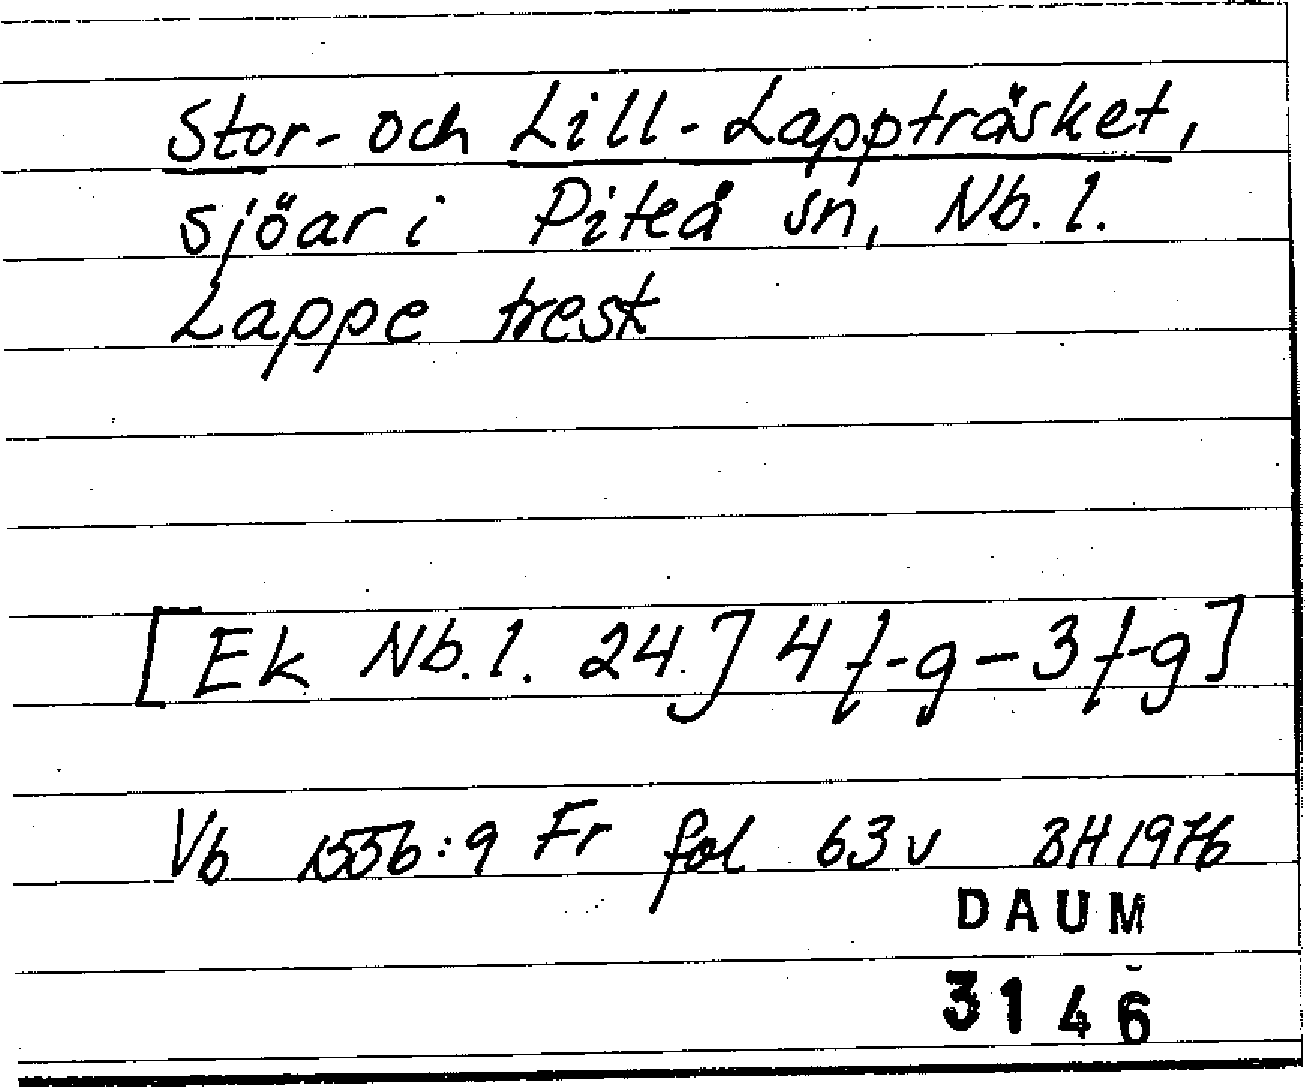 Stor- och Lill-Lappträsket,
sjöar i Piteå sn, Nb. l.
Lappe tresk
[Ek Nb. l. 24 J 4 f-g - 3 f-g]
Vb 1556:9 Fr fol 63 v BH 1976
DAUM
3146